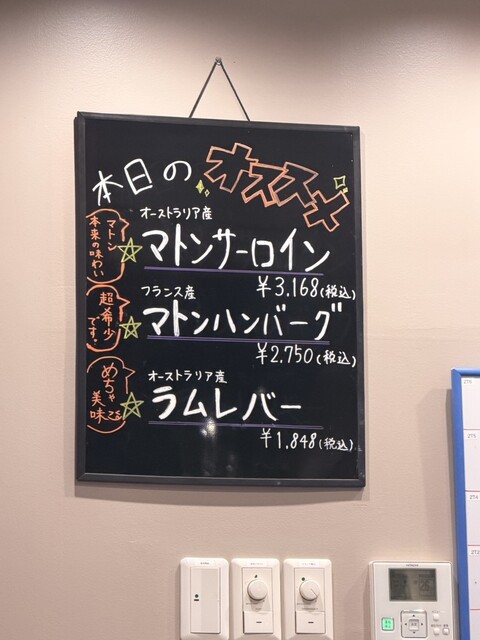 本日の オススメ
オーストラリア産
マトン
本来の味わい
マトンサーロイン
¥3,168(税込)
フランス産
超希少
です!
マトンハンバーグ
¥2,750(税込)
オーストラリア産
めちゃ
美味
ラムレバー
¥1,848(税込)